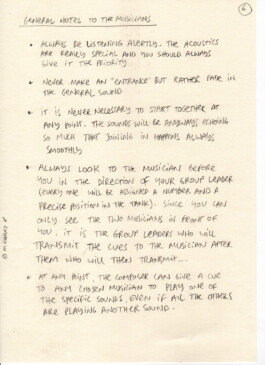 6
GENERAL NOTES TO THE MUSICIANS
• ALWAYS BE LISTENING ALERTLY. THE ACOUSTICS
ARE REALLY SPECIAL AND YOU SHOULD ALWAYS
GIVE IT THE PRIORITY.
• NEVER MAKE AN "ENTRANCE" BUT RATHER FADE IN
THE GENERAL SOUND
• IT IS NEVER NECESSARY TO START TOGETHER AT
ANY POINT. THE SOUNDS WILL BE ANYWAYS ECHOING
SO MUCH THAT JOINING IN HAPPENS ALWAYS
SMOOTHLY
• ALWAYS LOOK TO THE MUSICIAN BEFORE
YOU IN THE DIRECTION OF YOUR GROUP LEADER
(EVERY ONE WILL BE ASIGNED A NUMBER AND A
PRECISE POSITION IN THE TANK). SINCE YOU CAN
ONLY SEE THE TWO MUSICIANS IN FRONT OF
YOU, IT IS THE GROUP LEADERS WHO WILL
TRANSMIT THE CUES TO THE MUSICIAN AFTER
THEM WHO WILL THEN TRANSMIT...
• AT ANY POINT, THE COMPOSER CAN GIVE A CUE
TO ANY CHOSEN MUSICIAN TO PLAY ONE OF
THE SPECIFIC SOUNDS, EVEN IF ALL THE OTHERS
ARE PLAYING ANOTHER SOUND.